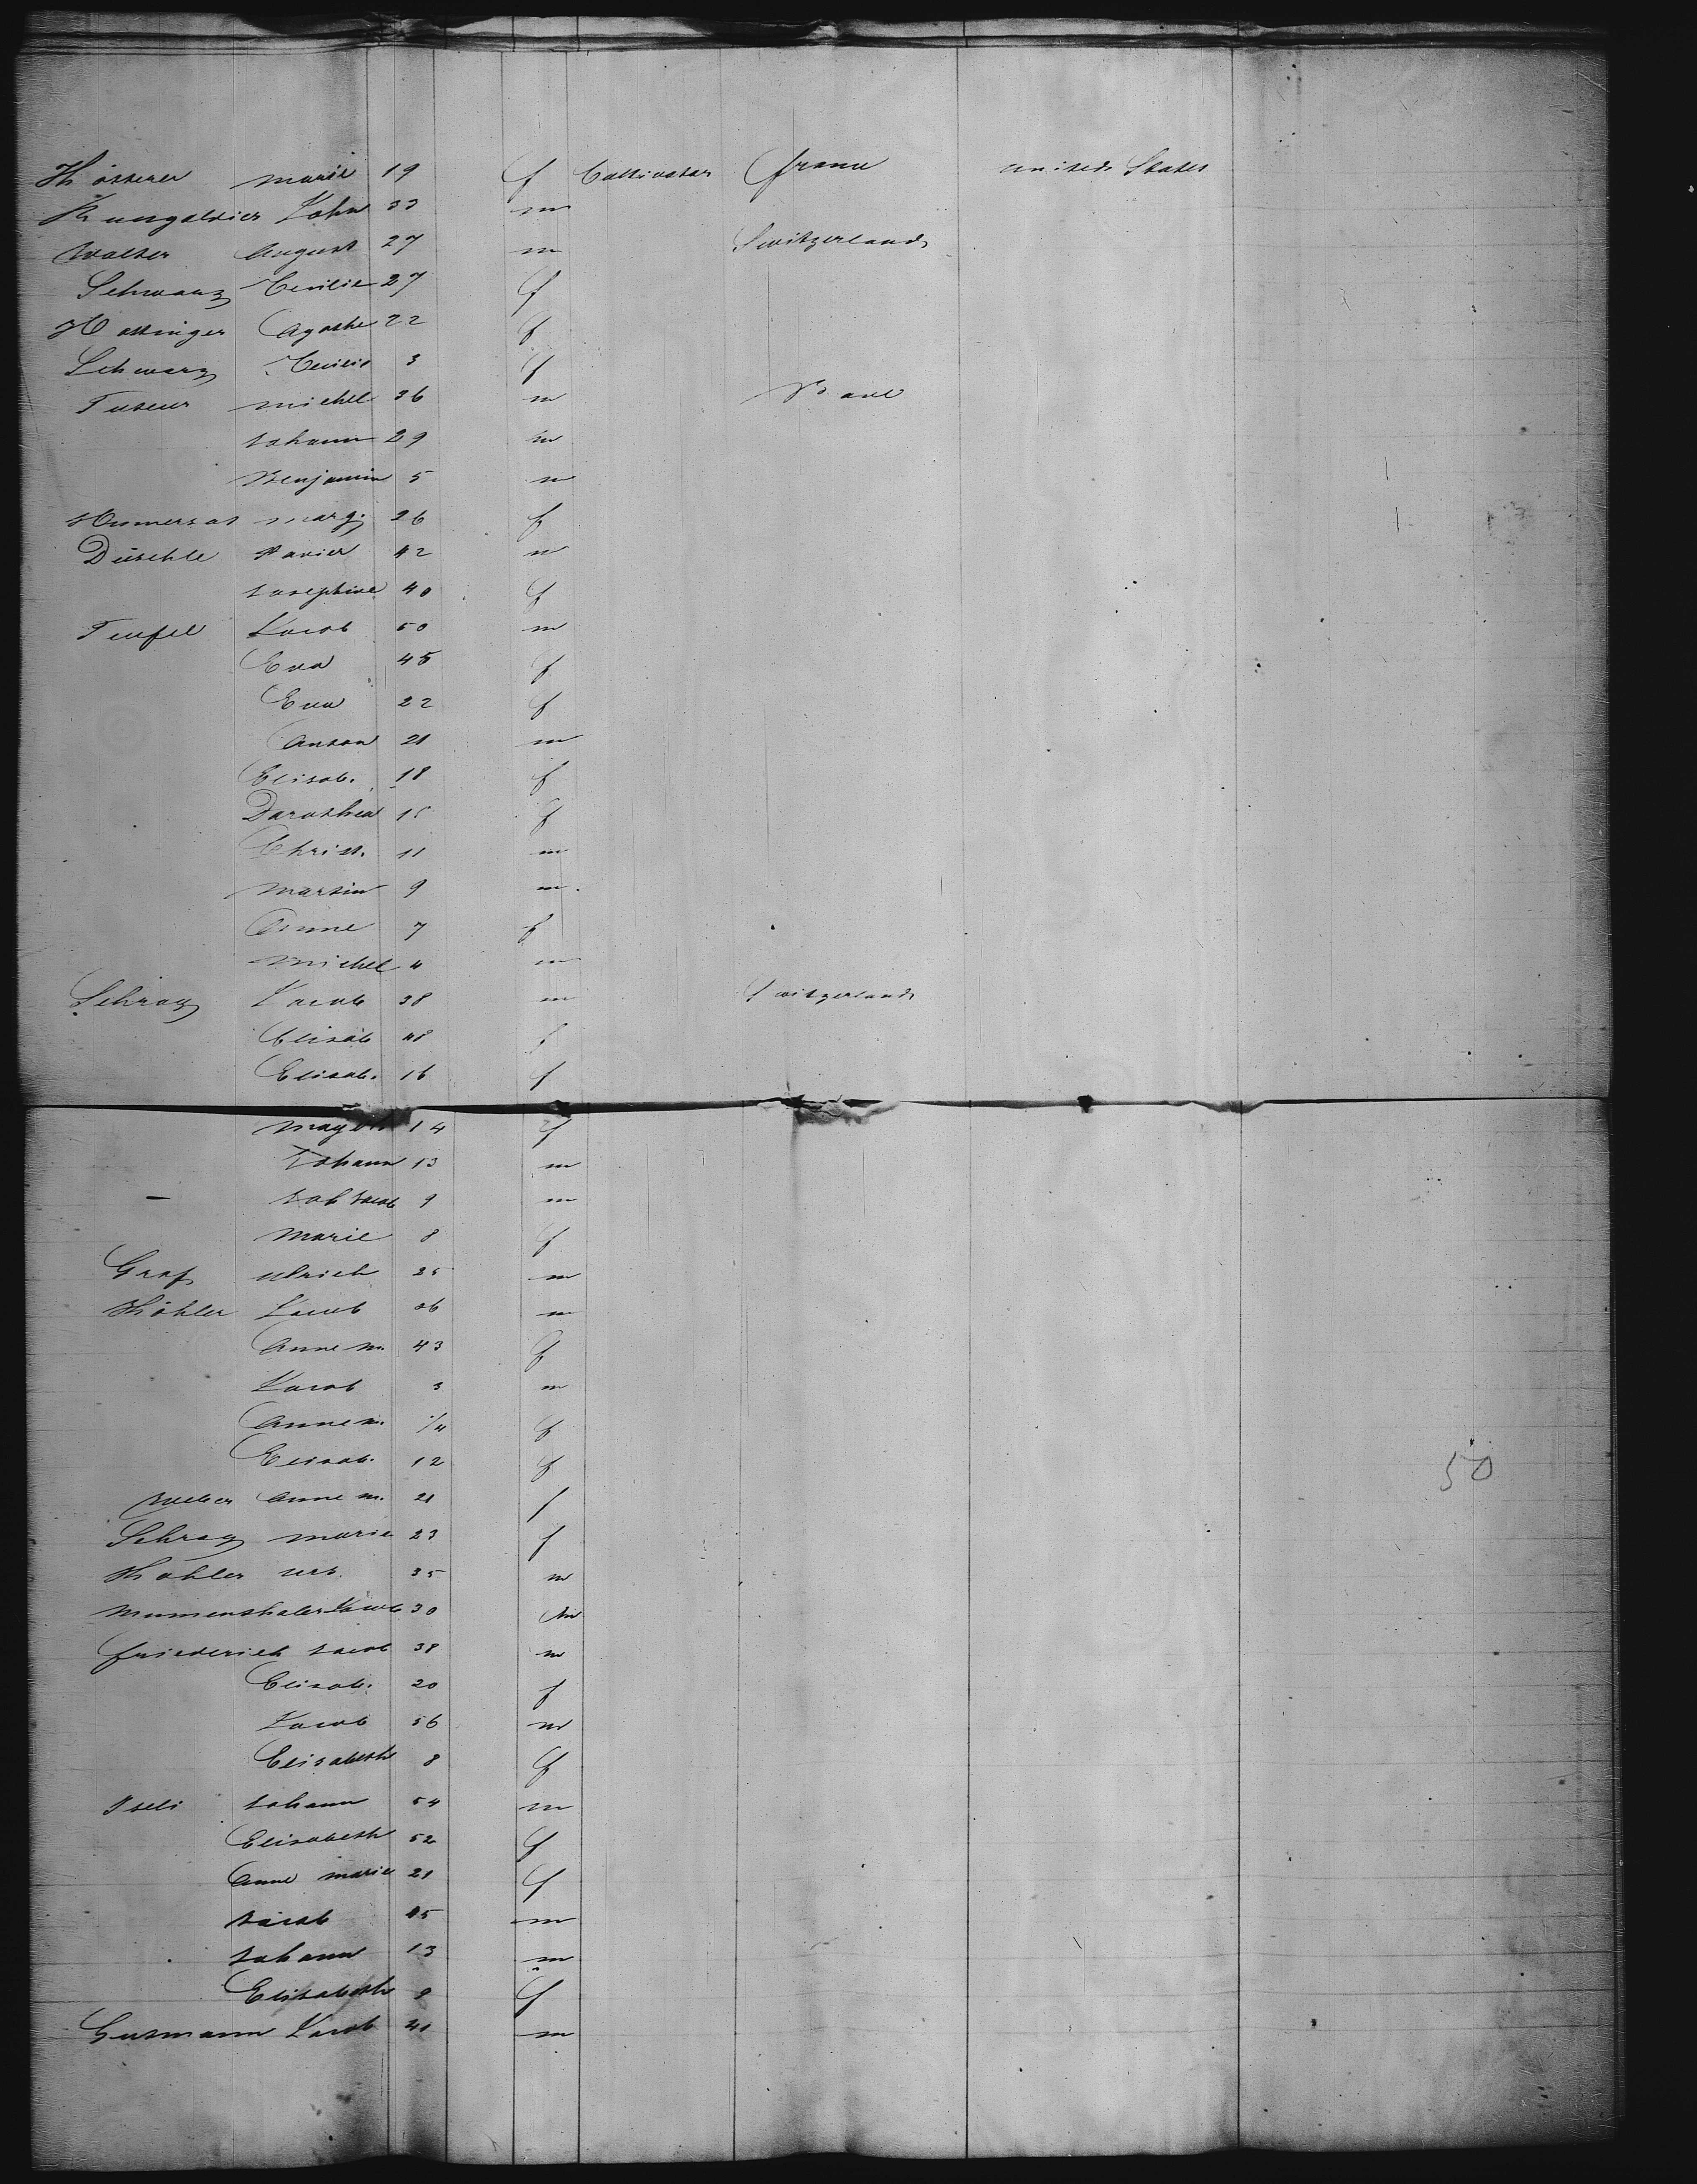 Kösserer Marie 19 f Cultivator France United States
Kungaldier John 33 m
Walter August 27 m Switzerland
Schwarz Cecilie 27 f
Hottinger Agathe 22 f
Schwarz Cecilie 3 f
Michel 36 m
Johann 29 m
Benjamin 5 m
Marg. 26 f
Düschle Xavier 42 m
Josephine 40 f
Teufel Jacob 50 m
Eva 45 f
Eva 22 f
Anton 21 m
Elisab. 18 f
Dorothea 15 f
Christ. 11 m
Martin 9 m
Anne 7 f
Michel 4 m
Schrag Jacob 38 m Switzerland
Elisab 48 f
Elisab. 16 f
14 f
Johann 13 m
— Joh Jacob 9 m
Marie 8 f
Graf Ulrich 25 m
Köhler Jacob 36 m
Anne M. 43 f
Jacob 3 m
Anne M. f
Elisab. 12 f
50
Weber Anne M. 21 f
Schrag Marie 23 f
Köhler Urs. 35 m
Mumenthaler Jacob 30 m
Friederich Jacob 38 m
Elisab. 20 f
Jacob 56 m
Elisabeth 8 f
Iseli Johann 54 m
Elisabeth 52 f
Anne Marie 21 f
Jacob 15 m
Johann 13 m
Elisabeth 8 f
Gutmann Jacob 21 m